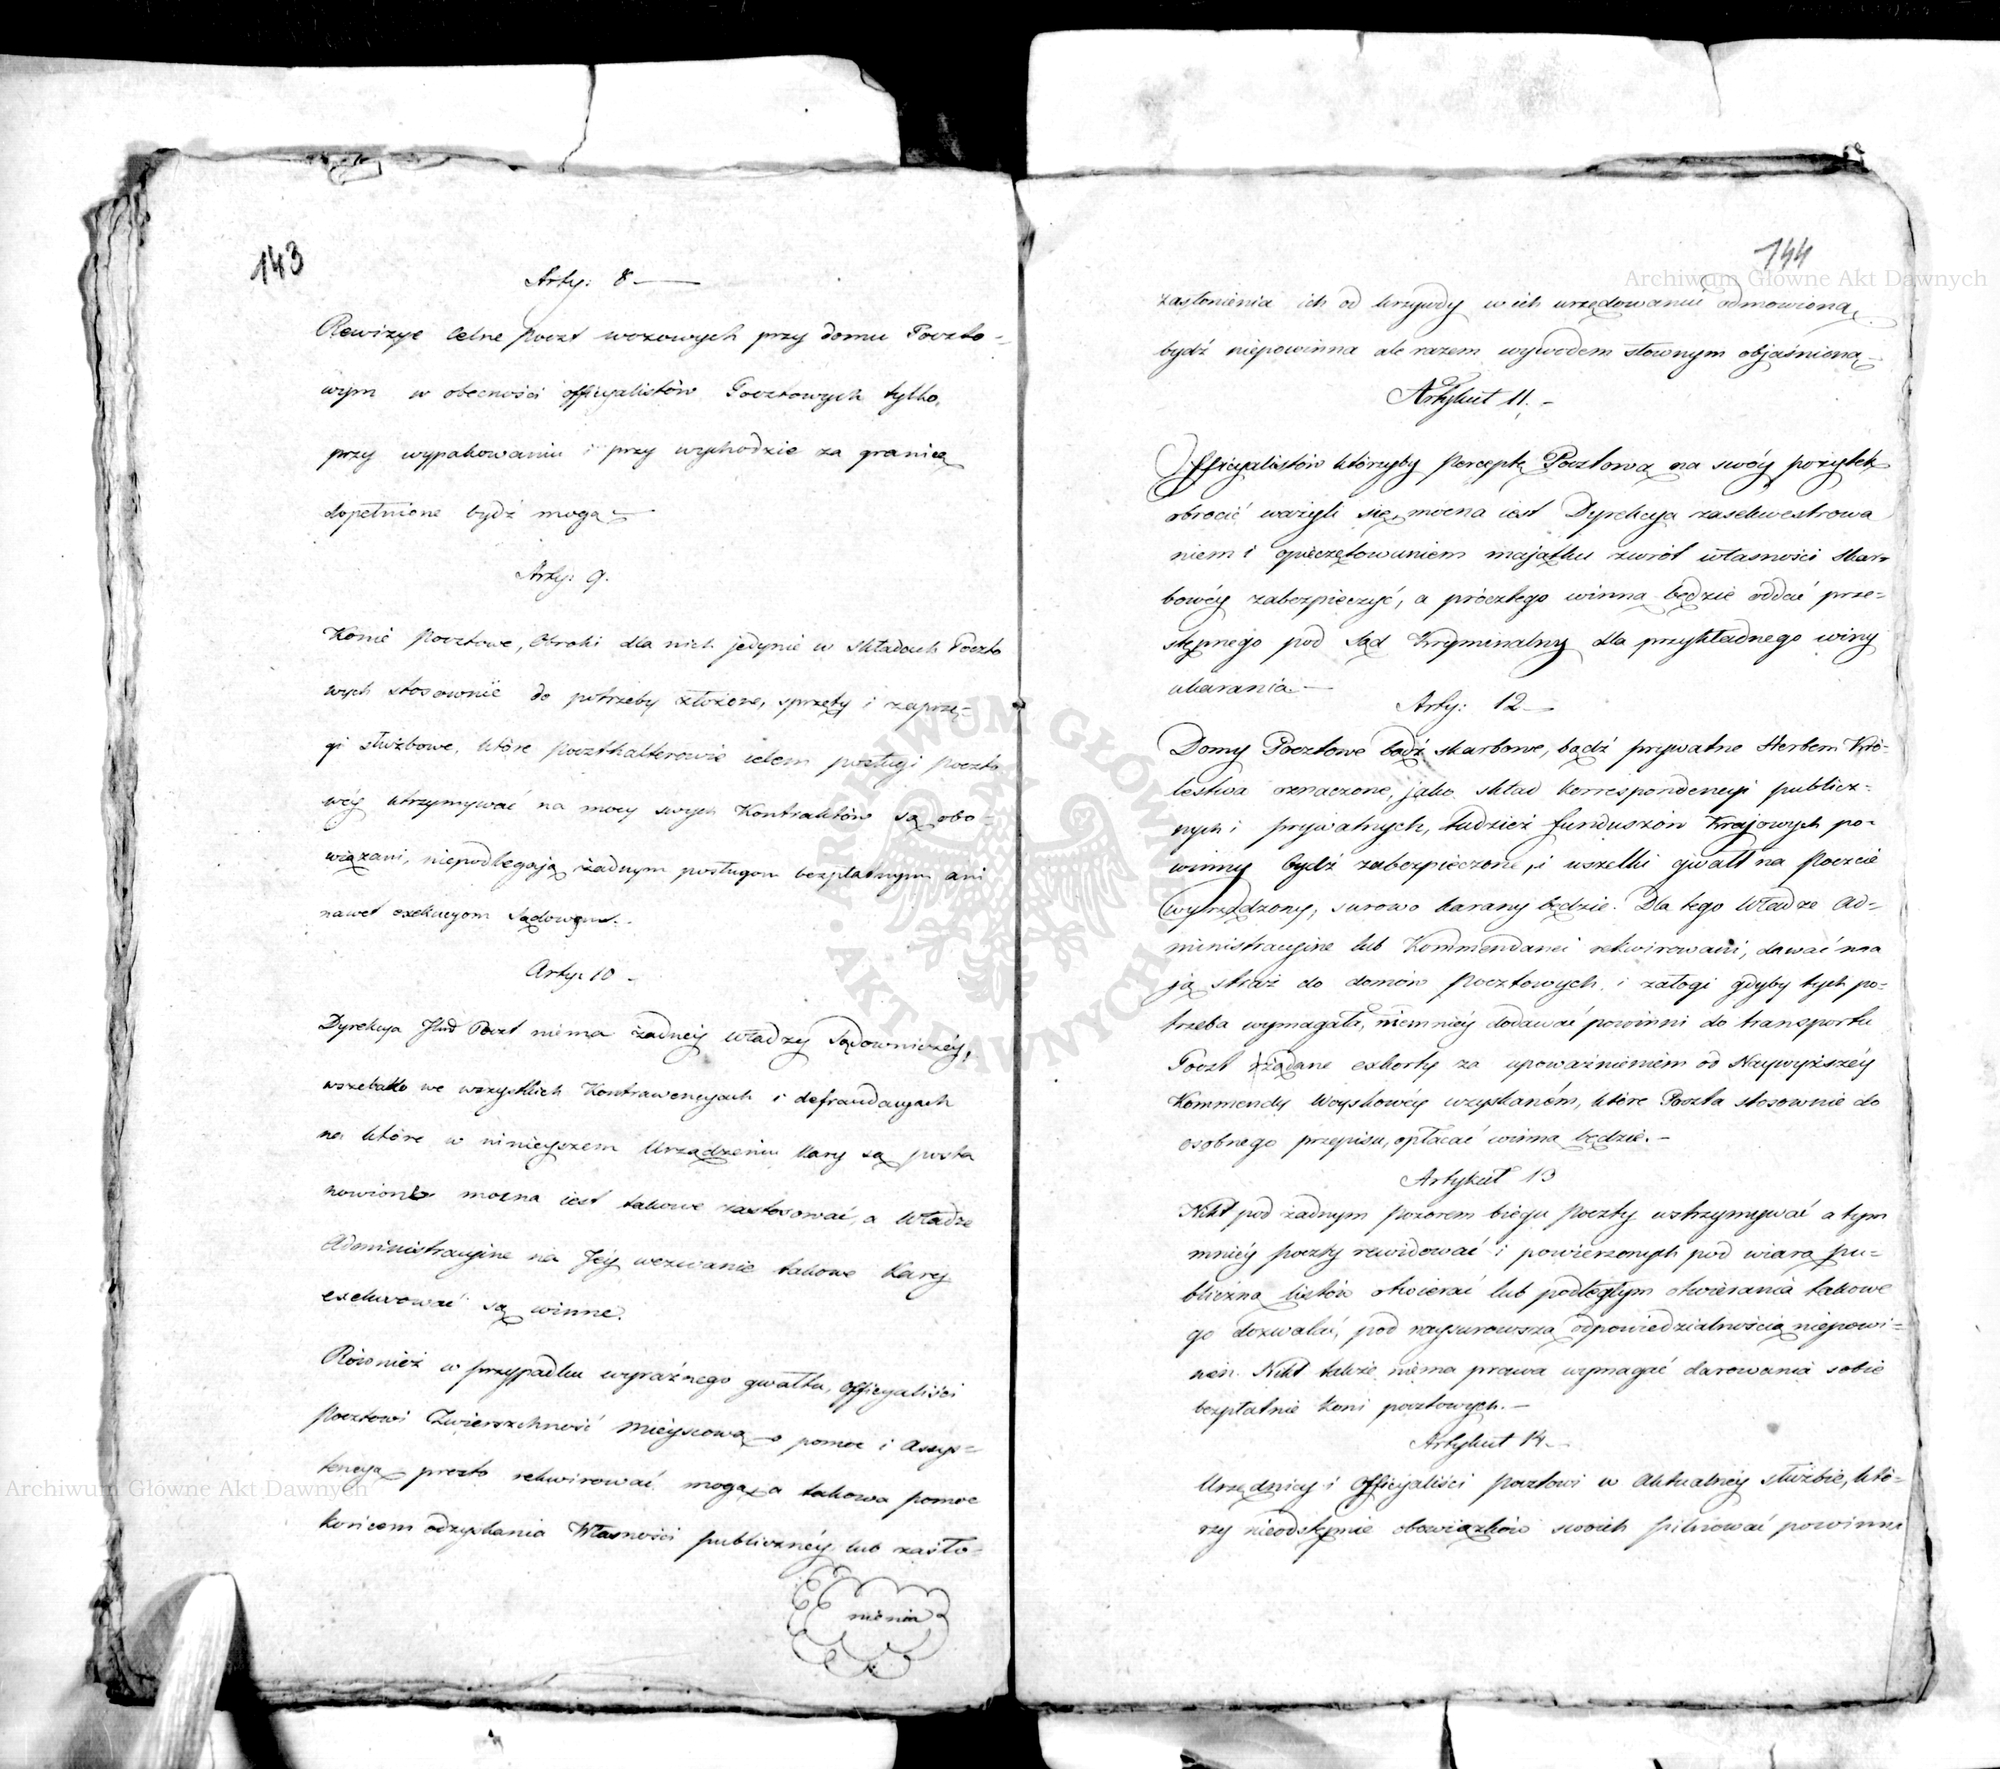 143
Arty: 8
Rewizye Celne Poczt wozowych przy domu Poczto-
wym w obecności officyalistów Pocztowych tylko,
przy wypakowaniu i przy wychodzie za granicę
dopełnione bydź mogą
Arty: 9.
Konie Pocztowe, Obroki dla nich jedynie w Składach Poczto
wych stosownie do potrzeby złożone, sprzęty i zaprzę-
gi służbowe, które poczthalterowie celem posługi poczto
wéy utrzymywać na mocy swych Kontraktów są obo-
wiązani, niepodlegają żadnym posługom bezpłatnym ani
nawet exekucyom Sądowym.
Arty: 10
Dyrekcya Poczt niema żadnéy władzy Sądowniczéy,
wszelako we wszystkich Kontrawencyach i defraudacyach
na które w ninieyszem Urządzeniu Kary są posta
nowione mocna iest takowe zastosować, a Władze
Administracyine na Jéy wezwanie takowe Kary
exekwować są winne.
Również w przypadku wyraźnego gwałtu, officyaliści
Pocztowi Zwierzchność Mieyscową o pomoc i Assys-
tencyą prosto rekwirować mogą, a takowa pomoc
końcem odzyskania Własności publicznéy lub zasło-
nienia
144
zasłonienia ich od krzywdy w ich urzędowaniu odmowiona
bydź niepowinna ale razem wywodem słownym objaśniona
Artykuł 11.
Officyalistów którzyby Perceptę Pocztową na swóy pożytek
obrócić ważyli się, mocna iest Dyrekcya zasekwestrowa
niem i opieczętowaniem majątku zwrót własności skar-
bowéy zabezpieczyć, a prócztego winna będzie oddać prze-
stępnego pod Sąd Kryminalny dla przykładnego winy
ukarania
Arty: 12
Domy Pocztowe bądź skarbowe, bądź prywatne Herbem Kró-
lestwa oznaczone, jako skład korrespondencyi publicz-
nych i prywatnych, tudzież funduszów Krajowych po-
winny bydź zabezpieczone, i wszelki gwałt na Poczcie
wyrządzony, surowo karany będzie. Dla tego Władze Ad-
ministracyine lub Kommendanci rekwirowani, dawać ma
ją straż do domów Pocztowych, i załogi gdyby tych po-
trzeba wymagała, niemniéy dodawać powinni do transportu
Poczt żądane exkorty za upoważnieniem od Naywyższéy
Kommendy Woyskowéy uzyskaném, które Poczta stosownie do
osobnego przepisu, opłacać winna będzie.
Artykuł 13
Nikt pod żadnym pozorem biegu Poczty wstrzymywać a tym
mniéy poczty rewidować i powierzonych pod wiarą pu-
bliczną listów otwierać lub podległym otwierania takowe
go dozwalać, pod naysurowszą odpowiedzialnością niepowi-
nien. Nikt także niema prawa wymagać darowania sobie
bezpłatnie koni pocztowych.
Artykuł 14.
Urzędnicy i Officyaliści pocztowi w aktualnéy służbie, któ-
rzy nieodstępnie obowiązków swoich pilnować powinni